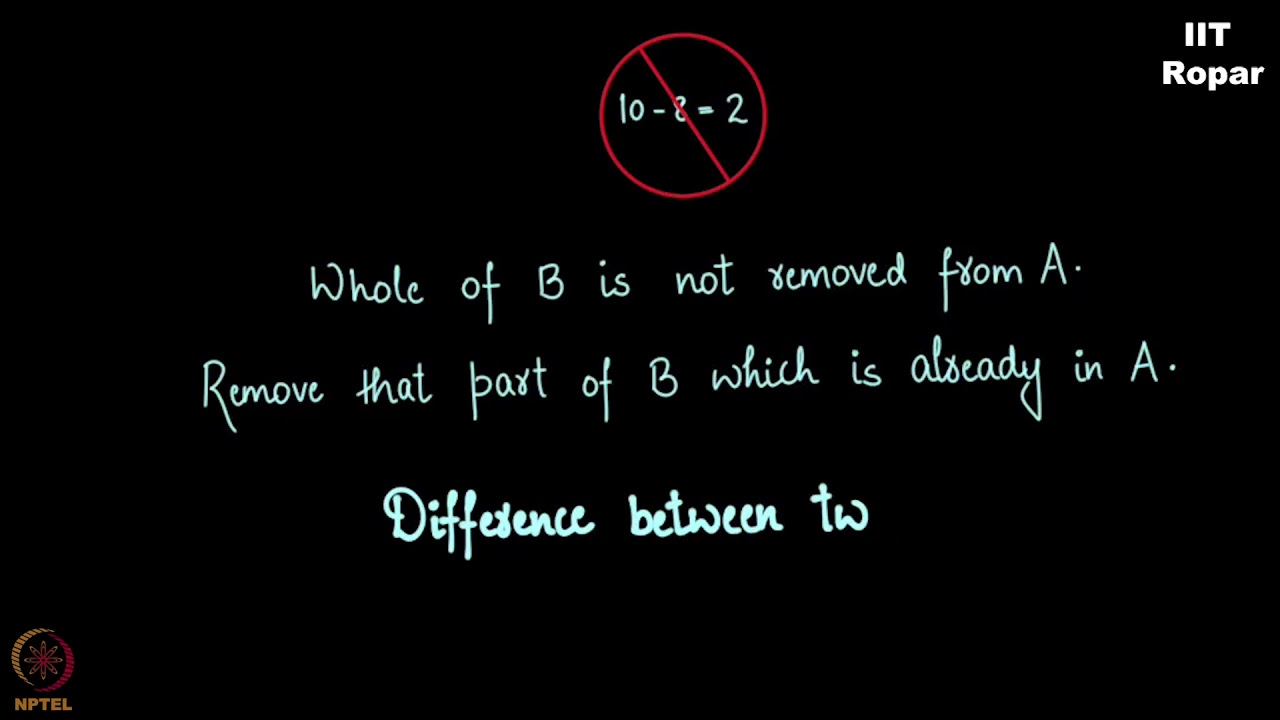 IIT
Ropar
10 - 8 = 2
Whole of B is not removed from A.
Remove that part of B which is already in A.
Difference between tw
NPTEL